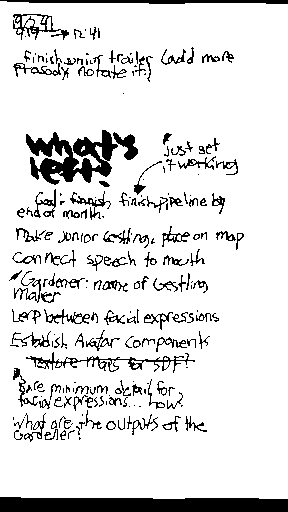 9/24
9:19 → 12:41
finish junior trailer (add more
prosody, notate it?)
what's
left?
just get
it working
Goal: finish finish pipeline by
end of month.
Make junior Gestling, place on map
Connect speech to mouth
Gardener: name of Gestling
Maker
Lerp between facial expressions
Establish Avatar components
texture maps for SDF?
Bare minimum detail for
facial expressions... how?
What are the outputs of the
Gardener?